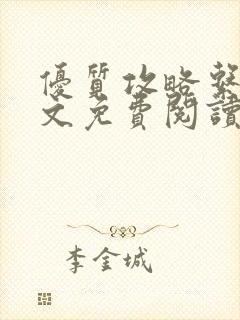 優質攻略繫
文免費閱讀
李金城